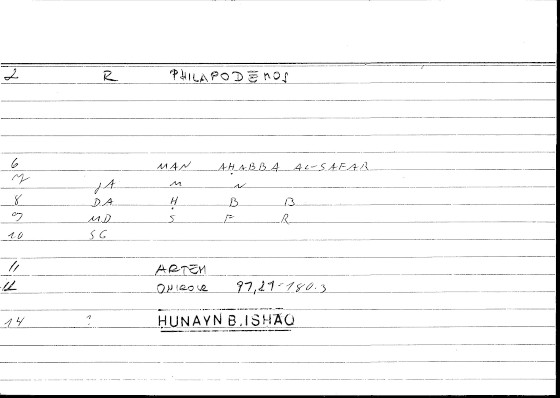 2 R PHILAPODEMOS
6 MAN AḤABBA AL-SAFAR
7 JA M N
8 DA Ḥ B B
9 MD S F R
10 SG
11 ARTEM
12 ONIROCR 97,21-180.3
14 ? HUNAYN B. ISHAQ